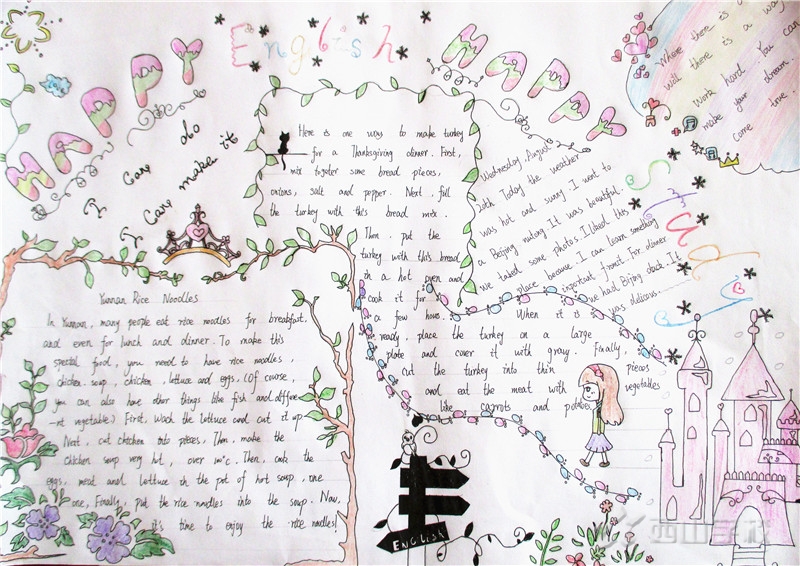 HAPPY
English
HAPPY
Study
I Can do
I Can make it
Where there is a
will there is a way
Work hard. You can
make your dream
come true.
Here is one way to make turkey
for a Thanksgiving dinner. First,
mix togeter some bread pieces,
onions, salt and popper. Next, fill
the turkey with this bread mix.
Then, put the
turkey with this bread
in a hot oven and
cook it for
a few hours. When it is
ready, place the turkey on a large
plate and cover it with gravy. Finally,
cut the turkey into thin pieces
and eat the meat with vegetables
like carrots and
Wednesday, August
20th Today the weather
was hot and sunny. I want to
a Beijing hutong It was beautiful.
we taked some photos. I liked this
place because I can learn something
inportant from it. for dinner
we had Bijing duck. It
was dilicious.
Yunnan Rice Noodles
In Yunnan, many people eat rice noodles for breakfast.
and even for lunch and dinner. To make this
special food, you need to have rice noodles,
chicken soup, chicken, lettuce and eggs, (Of course,
you can also have other things like fish and differe
-nt vegetable.) First, Wash the lettuce and cut it up
Next, cut chicken into pieces, Then, make the
chicken soup very hot, over 100°C. Then, cook the
eggs, meat and lettuce in the pot of hort soup, one
one, Finally, put the rice noodles into the soup. Now,
it's time to enjoy the rice noodles!
ENGLISH
西山学校